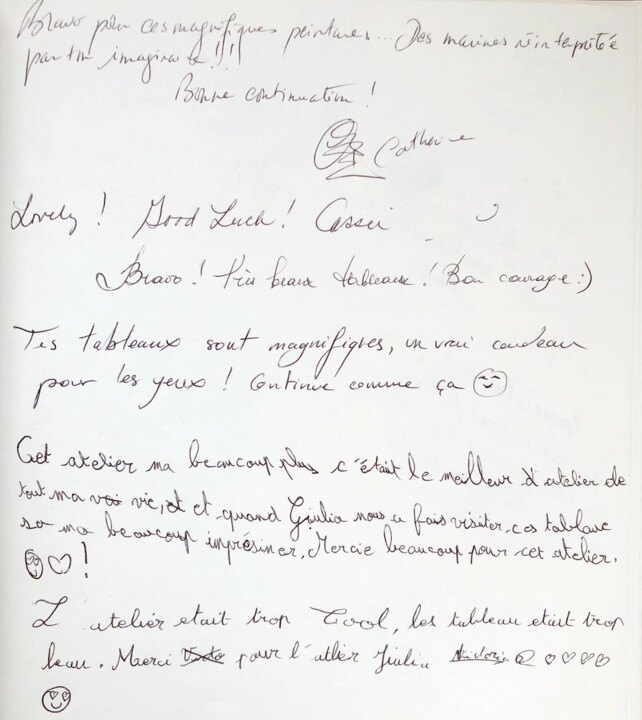 Bravo pour ces magnifiques peintures... Des marines réinterprétée
par ton imaginaire !!!
Bonne continuation !
Catherine
Lovely ! Good Luck !
Bravo ! Très beaux tableaux ! Bon courage :)
Tes tableaux sont magnifiques, un vrai caudeau
pour les yeux ! Continue comme ça
Cet atelier ma beaucoup plus c'était le meilleur d'atelier de
tout ma vie, et quand Giulia nous a fais visiter ces tablaux
sa ma beaucoup imprésiner, Mercie beaucoup pour cet atelier.
!
L'atelier etait trop Cool, les tableau etait trop
beau. Merci pour l'atlier Giulia